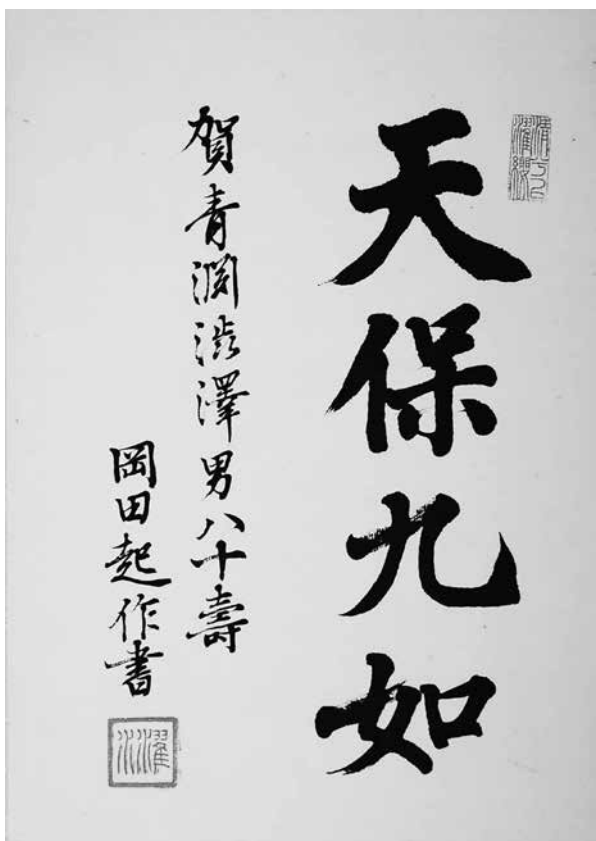 天保九如
賀青渕渋澤男八十壽
岡田起作書